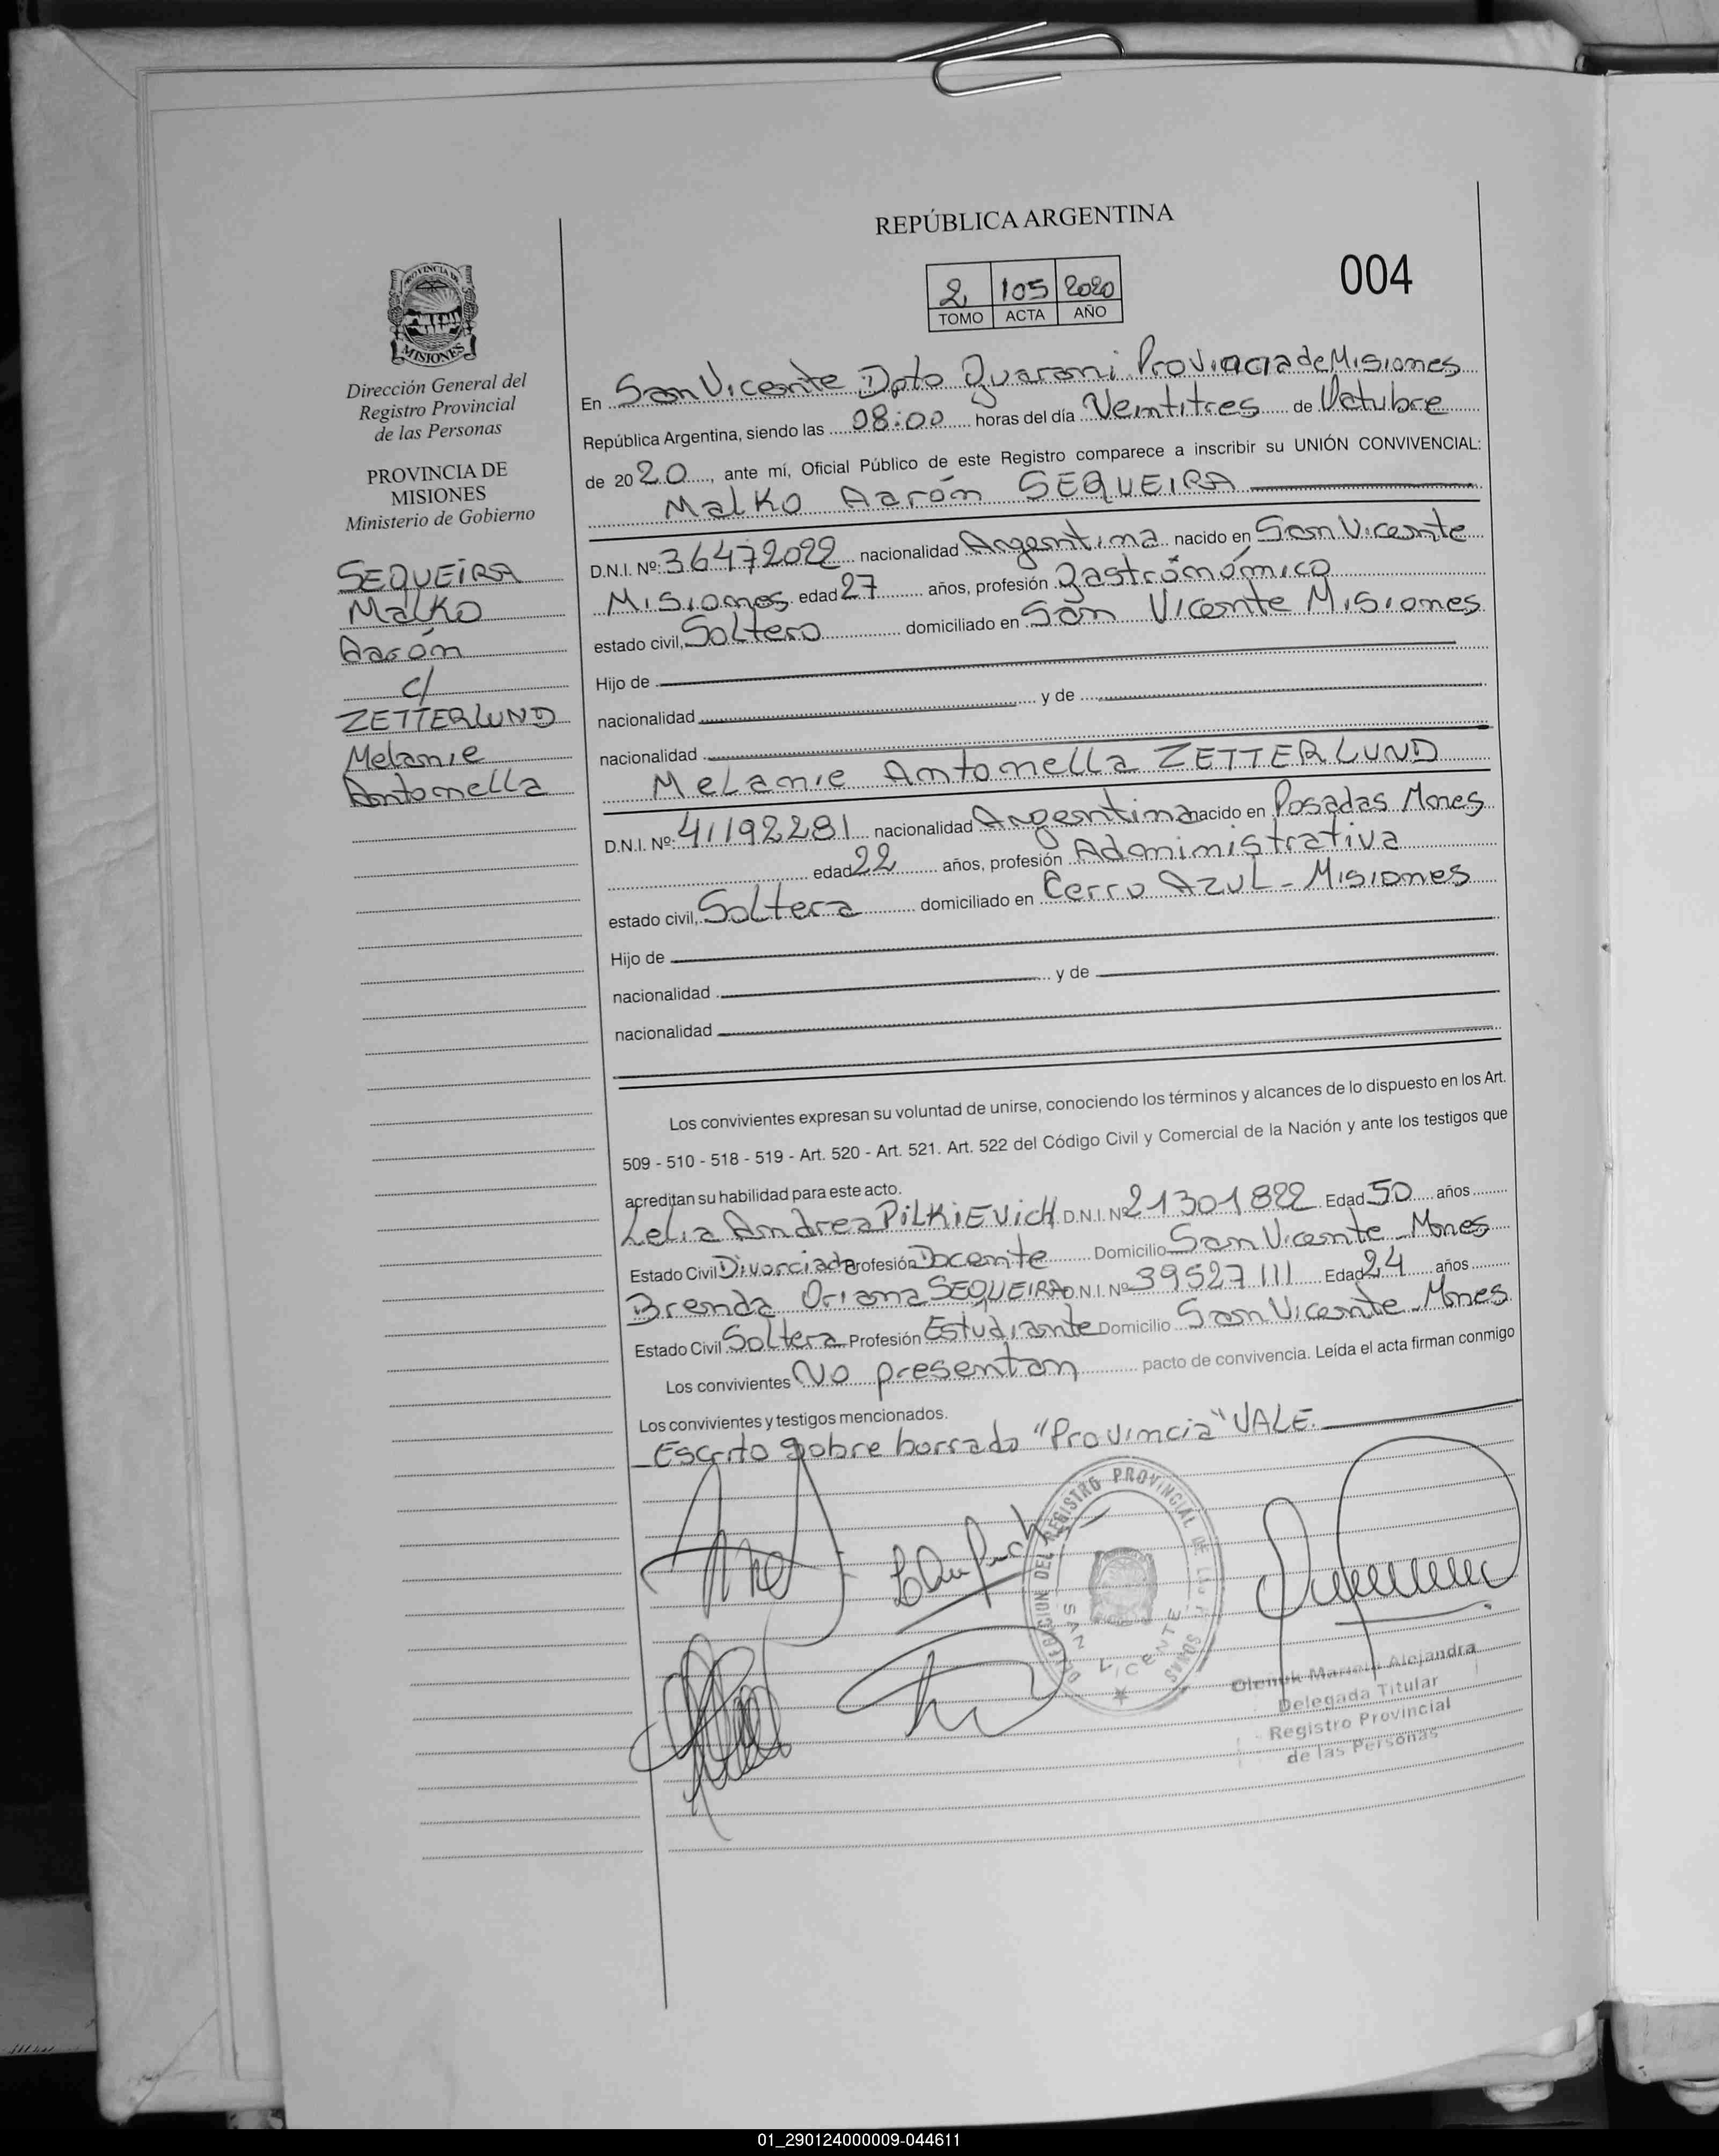 REPÚBLICA ARGENTINA
004
2 105 2020
TOMO ACTA AÑO
PROVINCIA DE
MISIONES
Dirección General del
Registro Provincial
de las Personas
PROVINCIA DE
MISIONES
Ministerio de Gobierno
SEQUEIRA
Malko
Aarón
c/
ZETTERLUND
Melanie
Antonella
En San Vicente Dpto Guarani Provincia de Misiones
República Argentina, siendo las 08:00 horas del día Veintitres de Octubre
de 2020, ante mí, Oficial Público de este Registro comparece a inscribir su UNIÓN CONVIVENCIAL:
Malko Aarón SEQUEIRA
D.N.I. Nº: 36472022 nacionalidad Argentina nacido en San Vicente
Misiones edad 27 años, profesión Gastrónómico
estado civil, Soltero domiciliado en San Vicente Misiones
Hijo de
nacionalidad y de
nacionalidad
Melanie Antonella ZETTERLUND
D.N.I. Nº: 41192281 nacionalidad Argentina nacido en Posadas Mnes
edad 22 años, profesión Administrativa
estado civil, Soltera domiciliado en Cerro Azul - Misiones
Hijo de
nacionalidad y de
nacionalidad
Los convivientes expresan su voluntad de unirse, conociendo los términos y alcances de lo dispuesto en los Art.
509 - 510 - 518 - 519 - Art. 520 - Art. 521. Art. 522 del Código Civil y Comercial de la Nación y ante los testigos que
acreditan su habilidad para este acto.
Lelia Andrea PILKIEVICH D.N.I. Nº 21301822 Edad 50 años
Estado Civil Divorciada Profesión Docente Domicilio San Vicente - Mnes
Brenda Oriana SEQUEIRA D.N.I. Nº 39527111 Edad 24 años
Estado Civil Soltera Profesión Estudiante Domicilio San Vicente - Mnes
Los convivientes No presentan pacto de convivencia. Leída el acta firman conmigo
Los convivientes y testigos mencionados.
Escrito sobre borrado "Provincia" VALE.
DELEGACION DEL REGISTRO PROVINCIAL DE LAS PERSONAS
SAN VICENTE
Mariela Alejandra
Delegada Titular
Registro Provincial
de las Personas
01_290124000009-044611